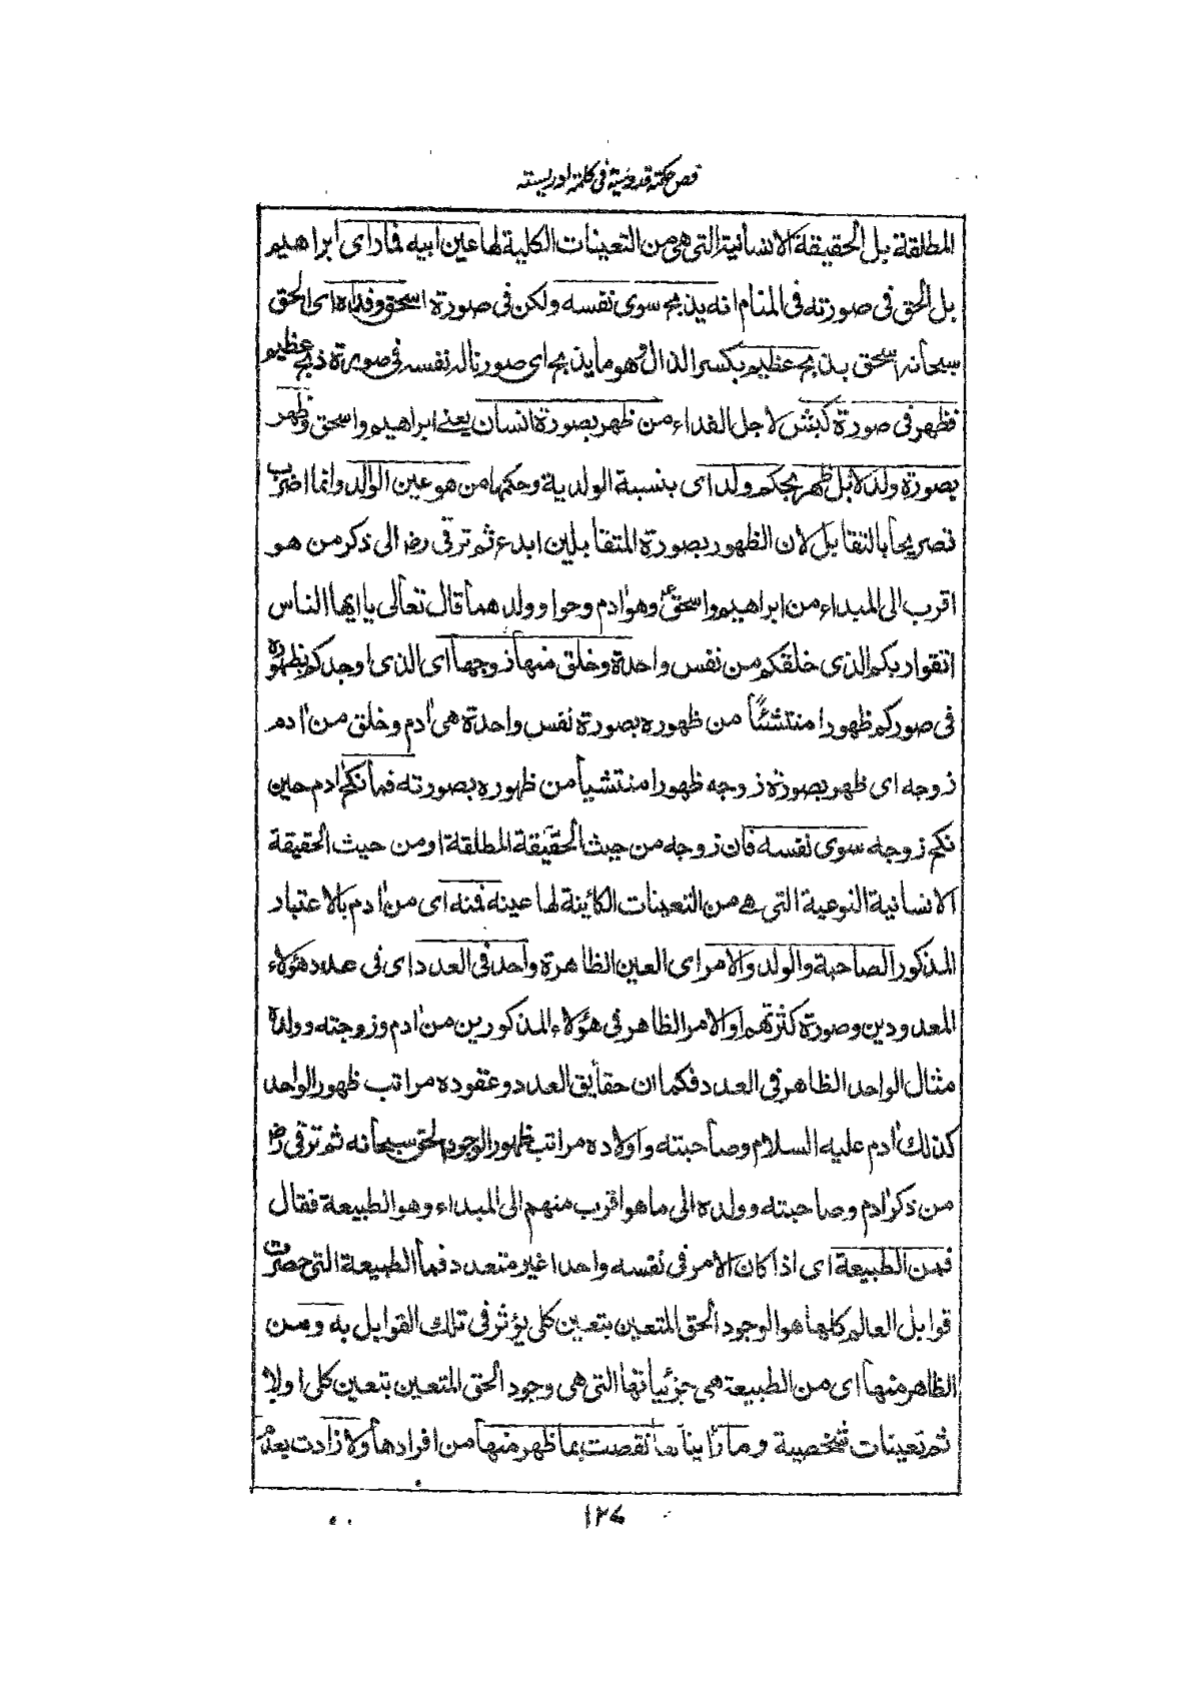 فص حكمة قدوسية فى كلمة ادريسية
المطلقة بل الحقيقة الانسانية التى هى من التعينات الكلية لها عين ابيه فما راى ابراهيم
بل الحق فى صورته فى المنام انه يذبح سوى نفسه ولكن فى صورة اسحق وفداه اى الحق
سبحانه اسحق بذبح عظيم بكسر الذال وهو ما يذبح اى صور ناله نفسه فى صورة ذبح عظيم
فظهر فى صورة كبش لاجل الفداء من ظهر بصورة انسان يعنے ابراهيم واسحق وظهر
بصورة ولد لا بل ظهر بحكم ولد اى بنسبة الولدية وحكمها من هو عين الوالد وانما اضرب
تصريحا بالتقابل لان الظهور بصورة المتقابلين ابدع ثم ترقى رضـ الى ذكر من هو
اقرب الى المبداء من ابراهيم واسحقؑ وهو اٰدم وحوا وولدهما قال تعالى يا ايها الناس
اتقوا ربكم الذى خلقكم من نفس واحدة وخلق منها زوجها اى الذى اوجدكم بظهوره
فى صوركم ظهورا منتشئًا من ظهوره بصورة نفس واحدة هى اٰدم وخلق من اٰدم
زوجه اى ظهر بصورة زوجه ظهورا منتشيا من ظهوره بصورته فما نكح اٰدم حين
نكح زوجه سوى نفسه فان زوجه من حيث الحقيقة المطلقة او من حيث الحقيقة
الانسانية النوعية التى هے من التعينات الكائينة لها عينه فمنه اى من اٰدم بالاعتبار
المذكور الصاحبة والولد والامر اى العين الظاهرة واحد فى العدد اى فى عدد هؤلاء
المعدودين وصورة كثرتهم او الامر الظاهر فى هؤلاء المذكورين من اٰدم وزوجته وولده
مثال الواحد الظاهر فى العدد فكما ان حقايق العدد وعقوده مراتب ظهور الواحد
كذلك اٰدم عليه السلام وصاحبته واولاده مراتب ظهور الوجود الحق سبحانه ثم ترقى رضـ
من ذكر اٰدم وصاحبته وولده الى ما هو اقرب منهم الى المبداء وهو الطبيعة فقال
فمن الطبيعة اى اذا كان الامر فى نفسه واحدا غير متعدد فما الطبيعة التى حصرت
قوابل العالم كلها هو الوجود الحق المتعين بتعين كلى يؤثر فى تلك القوابل به ومن
الظاهر منها اى من الطبيعة هى جزئياتها التى هى وجود الحق المتعين بتعين كلى اولا
ثم تعينات شخصية وما راينا ها نقصت بما ظهر منها من افرادها ولا زادت بعدم
١٢٦